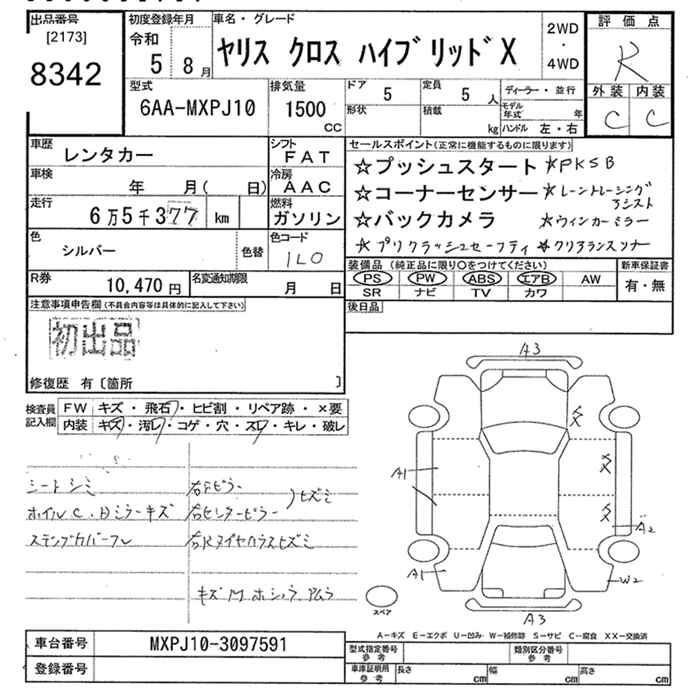 出品番号
[2173]
8342
初度登録年月
令和
5 8月
車名・グレード
ヤリス クロス ハイブリッドX
2WD
・
4WD
評価点
R
外装 内装
C C
型式
6AA-MXPJ10
排気量
1500
cc
ドア
5
定員
5 人
形状
積載
kg
ディーラー・並行
モデル年式 年
ハンドル 左・右
車歴
レンタカー
シフト
FAT
車検
年 月( 日)
冷房
AAC
走行
6万5千377 km
燃料
ガソリン
色
シルバー
色替
色コード
1L0
セールスポイント(正常に機能するものに限ります)
☆プッシュスタート ★PKSB
☆コーナーセンサー ★レーントレーシングアシスト
☆バックカメラ ★ウィンカーミラー
★プリクラッシュセーフティ ★クリアランスソナー
R券
10,470円
名変通知期限
月 日
装備品(純正品に限り○をつけてください)
PS PW ABS エアB AW
SR ナビ TV カワ
新車保証書
有・無
注意事項申告欄(不具合内容等は具体的に記入して下さい)
初出品
修復歴 有〔箇所 〕
後日品
検査員記入欄
FW キズ・飛石・ヒビ割・リペア跡・×要
内装 キズ・汚レ・コゲ・穴・スレ・キレ・破レ
シートシミ
ホイルC.Dミラーキズ
ステップカバースレ
右Fピラー
右センターピラー
)ヒズミ
右Rタイヤハウスヒズミ
キズ M ホシュウ.アムラ
A3
A1
A2
A1
W2
A3
スペア
A-キズ E-エクボ U-凹み W-補修跡 S-サビ C-腐食 XX-交換済
車台番号
MXPJ10-3097591
登録番号
型式指定番号
参考
類別区分番号
参考
車庫証明用
参考
長さ cm
幅 cm
高さ cm